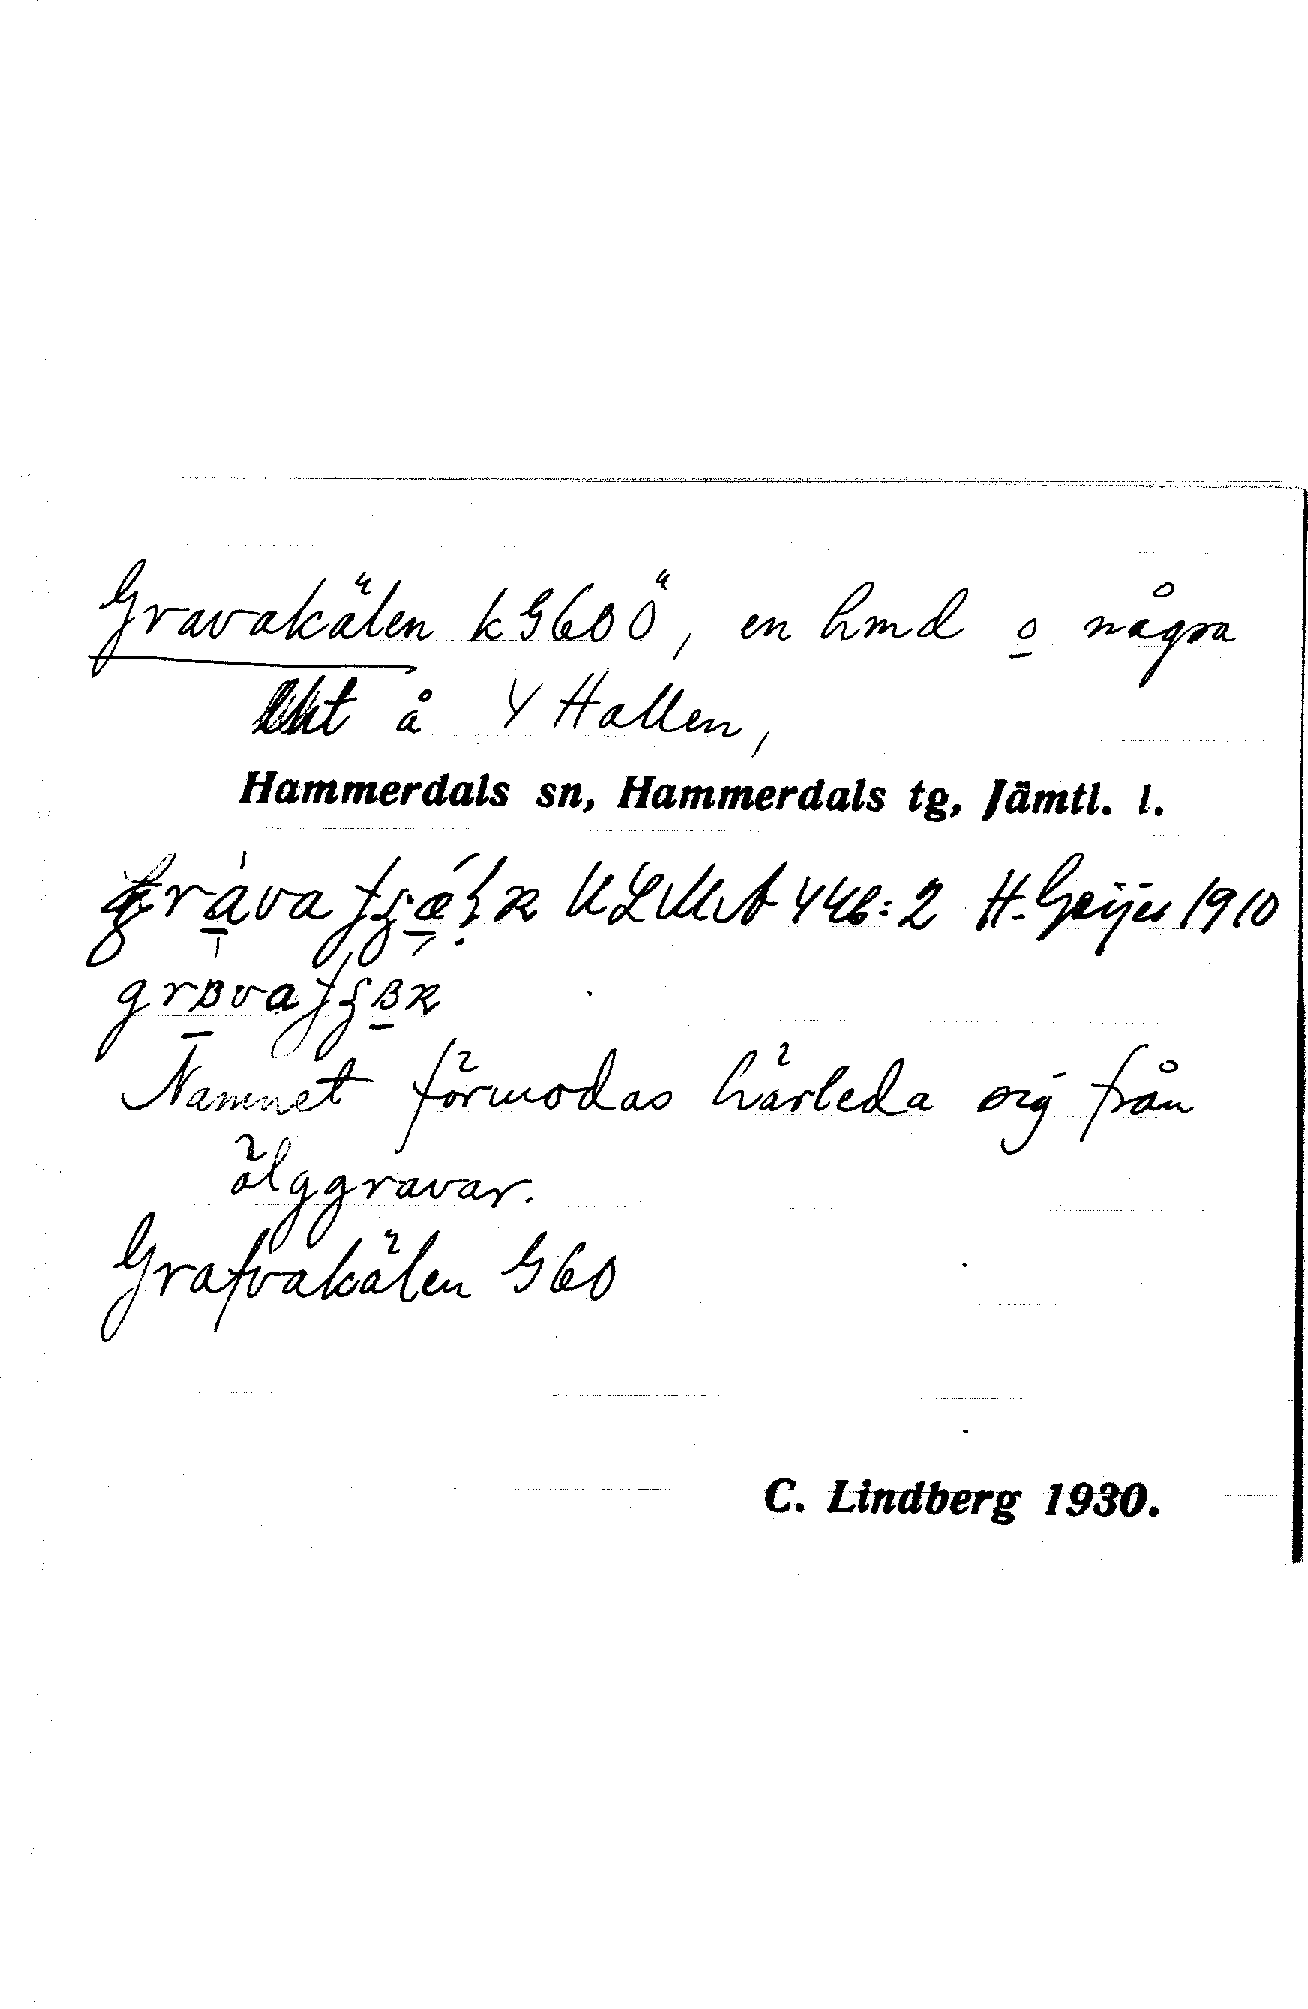 Gravakälen k G60Ö, en hmd o några
lht å Y Hallen,
Hammerdals sn, Hammerdals tg, Jämtl. l.
ULMA 446:2 H. Geijer 1910
Namnet förmodas härleda sig från
älggravar.
Grafvakälen G60
C. Lindberg 1930.